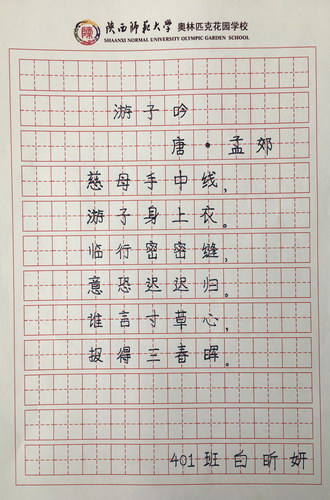 陕西师范大学 奥林匹克花园学校
SHAANXI NORMAL UNIVERSITY OLYMPIC GARDEN SCHOOL
游子吟
唐·孟郊
慈母手中线，
游子身上衣。
临行密密缝，
意恐迟迟归。
谁言寸草心，
报得三春晖。
401班白昕妍